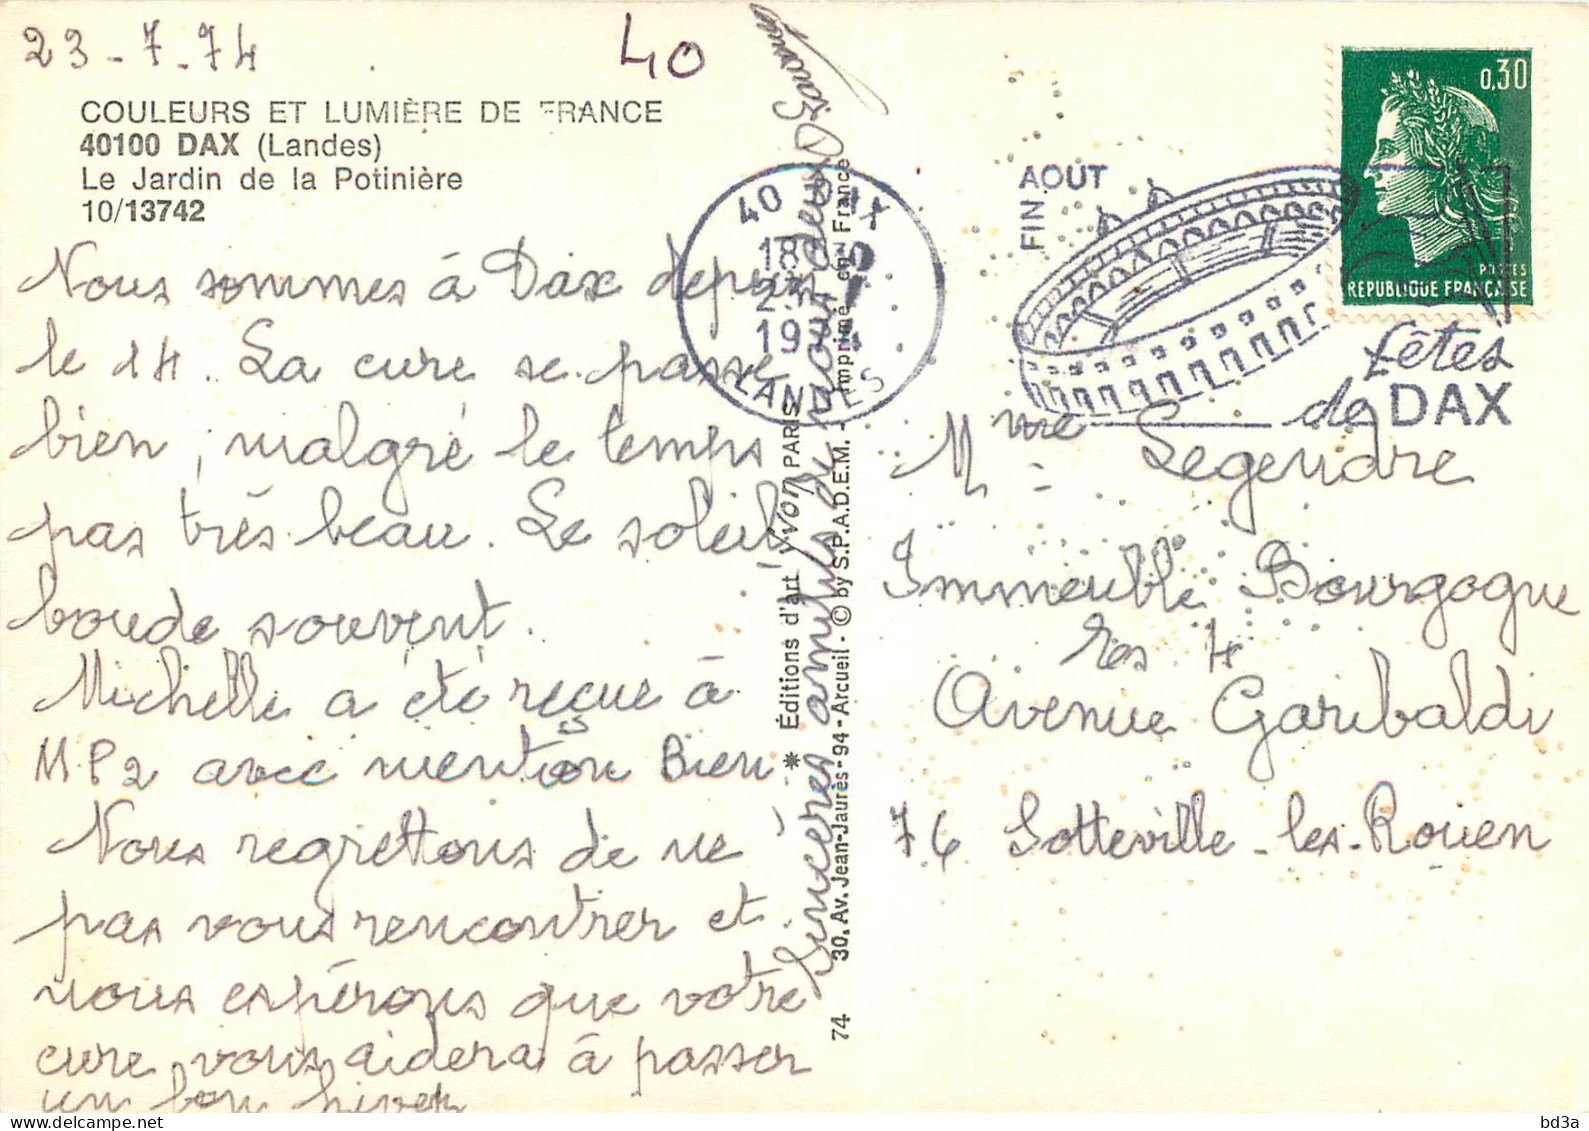 23-7-74
40
COULEURS ET LUMIÈRE DE FRANCE
40100 DAX (Landes)
Le Jardin de la Potinière
10/13742
Nous sommes à Dax depuis
le 14. La cure se passe
bien, malgré le temps
pas très beau. Le soleil
boude souvent.
Michelle a été reçue à
MP2 avec mention Bien
Nous regrettons de ne
pas vous rencontrer et
nous espérons que votre
cure vous aidera à passer
un bon hiver
Sincères amitiés de nous deux
✻ Éditions d'art Yvon PARIS
30, Av. Jean-Jaurès - 94 - Arcueil - © by S.P.A.D.E.M. - Imprimé en France
74
40 DAX
18H30
1974
LANDES
FIN AOUT
fêtes
de DAX
0,30
POSTES
REPUBLIQUE FRANCAISE
Mme Legendre
Immeuble Bourgogne
4
Avenue Garibaldi
76 Sotteville-les-Rouen
bd3a